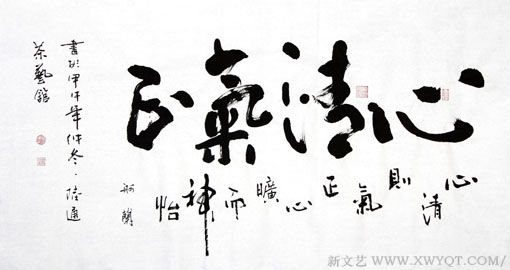 心清氣正
心清則氣正心曠而神怡
書於甲午年仲冬·陸通
茶藝館
新文艺 WWW.XWYQT.COM/